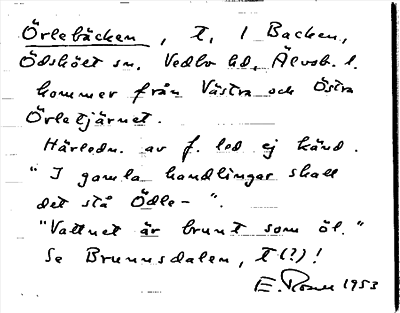 Örlebäcken, t. l Backen,
Ödskölt sn. Vedbo hd, Älvsb. l.
kommer från Västra och Östra
Örletjärnet.
Härledn. av f. led ej känd.
"I gamla handlingar skall
det stå Ödle- ".
"Vattnet är brunt som öl."
Se Brunnsdalen, t(?)!
E. Rosell 1953